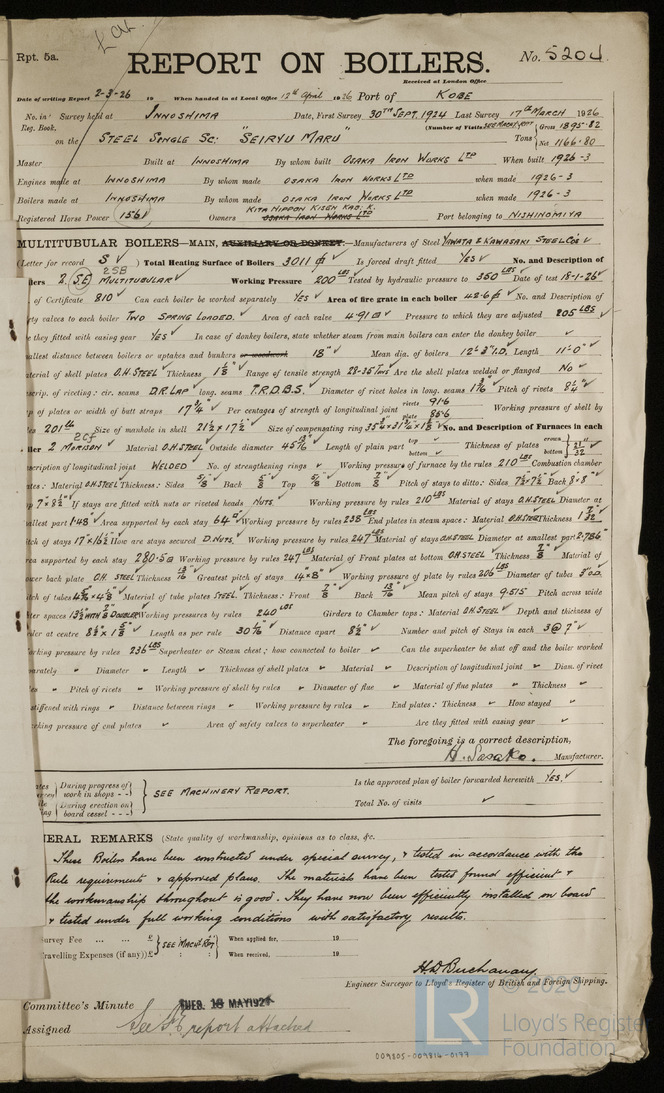 Lat.
Rpt. 5a.
REPORT ON BOILERS.
No. 5204
Received at London Office
Date of writing Report 2-3-26 19 When handed in at Local Office 12th April 1926 Port of KOBE
No. in Survey held at INNOSHIMA Date, First Survey 30TH SEPT. 1924 Last Survey 17TH MARCH 1926
Reg. Book. (Number of Visits SEE MACHY. RPT) Gross 1895.82
on the STEEL SINGLE SC: "SEIRYU MARU" Tons Net 1166.80
Master Built at INNOSHIMA By whom built OSAKA IRON WORKS LTD When built 1926-3
Engines made at INNOSHIMA By whom made OSAKA IRON WORKS LTD when made 1926-3
Boilers made at INNOSHIMA By whom made OSAKA IRON WORKS LTD when made 1926-3
Registered Horse Power 156 Owners KITA NIPPON KISEN KAB. K. OSAKA IRON WORKS LTD Port belonging to NISHINOMIYA
MULTITUBULAR BOILERS—MAIN, AUXILIARY OR DONKEY.—Manufacturers of Steel YAWATA & KAWASAKI STEEL COS
(Letter for record S) Total Heating Surface of Boilers 3011 Is forced draft fitted YES No. and Description of
ilers 2 (SE) 2SB MULTITUBULAR Working Pressure 200 LBS Tested by hydraulic pressure to 350 LBS Date of test 18-1-26
of Certificate 810 Can each boiler be worked separately YES Area of fire grate in each boiler 42.6 No. and Description of
ty valves to each boiler TWO SPRING LOADED. Area of each valve 4.91 Pressure to which they are adjusted 205 LBS
e they fitted with easing gear YES In case of donkey boilers, state whether steam from main boilers can enter the donkey boiler
allest distance between boilers or uptakes and bunkers or woodwork 18" Mean dia. of boilers 12'-3" I.D. Length 11'-0"
aterial of shell plates O.H. STEEL Thickness 1 1/8 Range of tensile strength 28-35 TONS Are the shell plates welded or flanged NO
scrip. of riveting: cir. seams D.R. LAP long. seams T.R.D.B.S. Diameter of rivet holes in long. seams 1 3/16 Pitch of rivets 8 1/4"
p of plates or width of butt straps 17 3/4" Per centages of strength of longitudinal joint rivets 91.6 plate 85.6 Working pressure of shell by
es 201 lbs Size of manhole in shell 21 1/2 x 17 1/2 Size of compensating ring No. and Description of Furnaces in each
iler 2 2Cf MORISON Material O.H. STEEL Outside diameter Length of plain part top bottom Thickness of plates crown bottom 21/32
scription of longitudinal joint WELDED No. of strengthening rings Working pressure of furnace by the rules 210 LBS Combustion chamber
ates: Material O.H. STEEL Thickness: Sides 5/8 Back 5/8 Top 5/8 Bottom 7/8 Pitch of stays to ditto: Sides 7 1/2 x 7 1/2 Back 8" x 8"
p 7" x 8 1/2 If stays are fitted with nuts or riveted heads NUTS. Working pressure by rules 210 LBS Material of stays O.H. STEEL Diameter at
allest part 1.48 Area supported by each stay 64 Working pressure by rules 238 LBS End plates in steam space: Material O.H. STEEL Thickness 1 7/32
tch of stays 17" x 16 1/2 How are stays secured D. NUTS. Working pressure by rules 247 LBS Material of stays O.H. STEEL Diameter at smallest part 2.786"
ea supported by each stay 280.5 Working pressure by rules 247 LBS Material of Front plates at bottom O.H. STEEL Thickness 7/8 Material of
ower back plate O.H. STEEL Thickness 13/16 Greatest pitch of stays 14" x 8" Working pressure of plate by rules 206 LBS Diameter of tubes 3" O.D.
tch of tubes Material of tube plates STEEL. Thickness: Front 7/8 Back 13/16 Mean pitch of stays 9.515" Pitch across wide
ter spaces 13 1/2 WITH DOUBLER Working pressures by rules 240 LBS Girders to Chamber tops: Material O.H. STEEL Depth and thickness of
der at centre 8 1/2 x 1 5/8 Length as per rule Distance apart 8 1/2" Number and pitch of Stays in each 3 @ 7"
orking pressure by rules 236 LBS Superheater or Steam chest; how connected to boiler Can the superheater be shut off and the boiler worked
parately Diameter Length Thickness of shell plates Material Description of longitudinal joint Diam. of rivet
es Pitch of rivets Working pressure of shell by rules Diameter of flue Material of flue plates Thickness
stiffened with rings Distance between rings Working pressure by rules End plates: Thickness How stayed
rking pressure of end plates Area of safety valves to superheater Are they fitted with easing gear
The foregoing is a correct description,
H. Sasako. Manufacturer.
During progress of work in shops - -
During erection on board vessel - - -
SEE MACHINERY REPORT.
Is the approved plan of boiler forwarded herewith YES.
Total No. of visits
NERAL REMARKS (State quality of workmanship, opinions as to class, &c.
These Boilers have been constructed under special survey, & tested in accordance with the
Rule requirements & approved plans. The materials have been tested found efficient &
the workmanship throughout is good. They have now been efficiently installed on board
& tested under full working conditions with satisfactory results.
Survey Fee ... ... £ SEE MACHY RPT When applied for, 19
Travelling Expenses (if any) £ : : When received, 19
H.D. Buchanan
Engineer Surveyor to Lloyd's Register of British and Foreign Shipping.
Committee's Minute TUES. 18 MAY 1926
Assigned See F.E. report attached
© 2020
LR Lloyd's Register
Foundation
009805-009814-0177